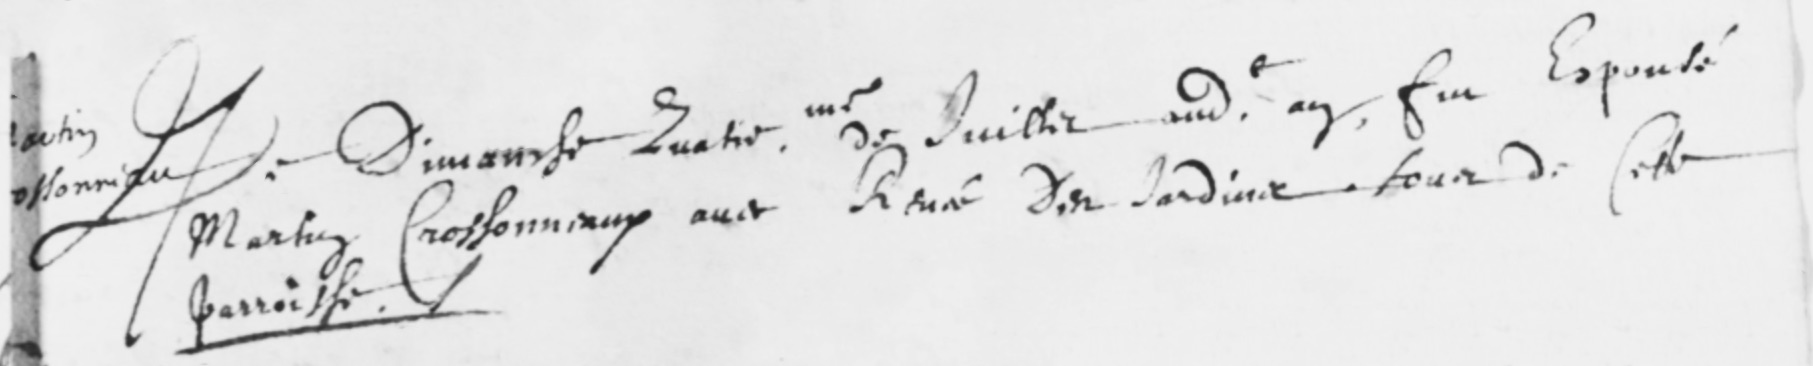 Le Dimanche Quatie.me de Juillet aud.t an, fut Espousé
Martin Crossonneaup avec Renée Des Jardins touts de Cette
parroisse.